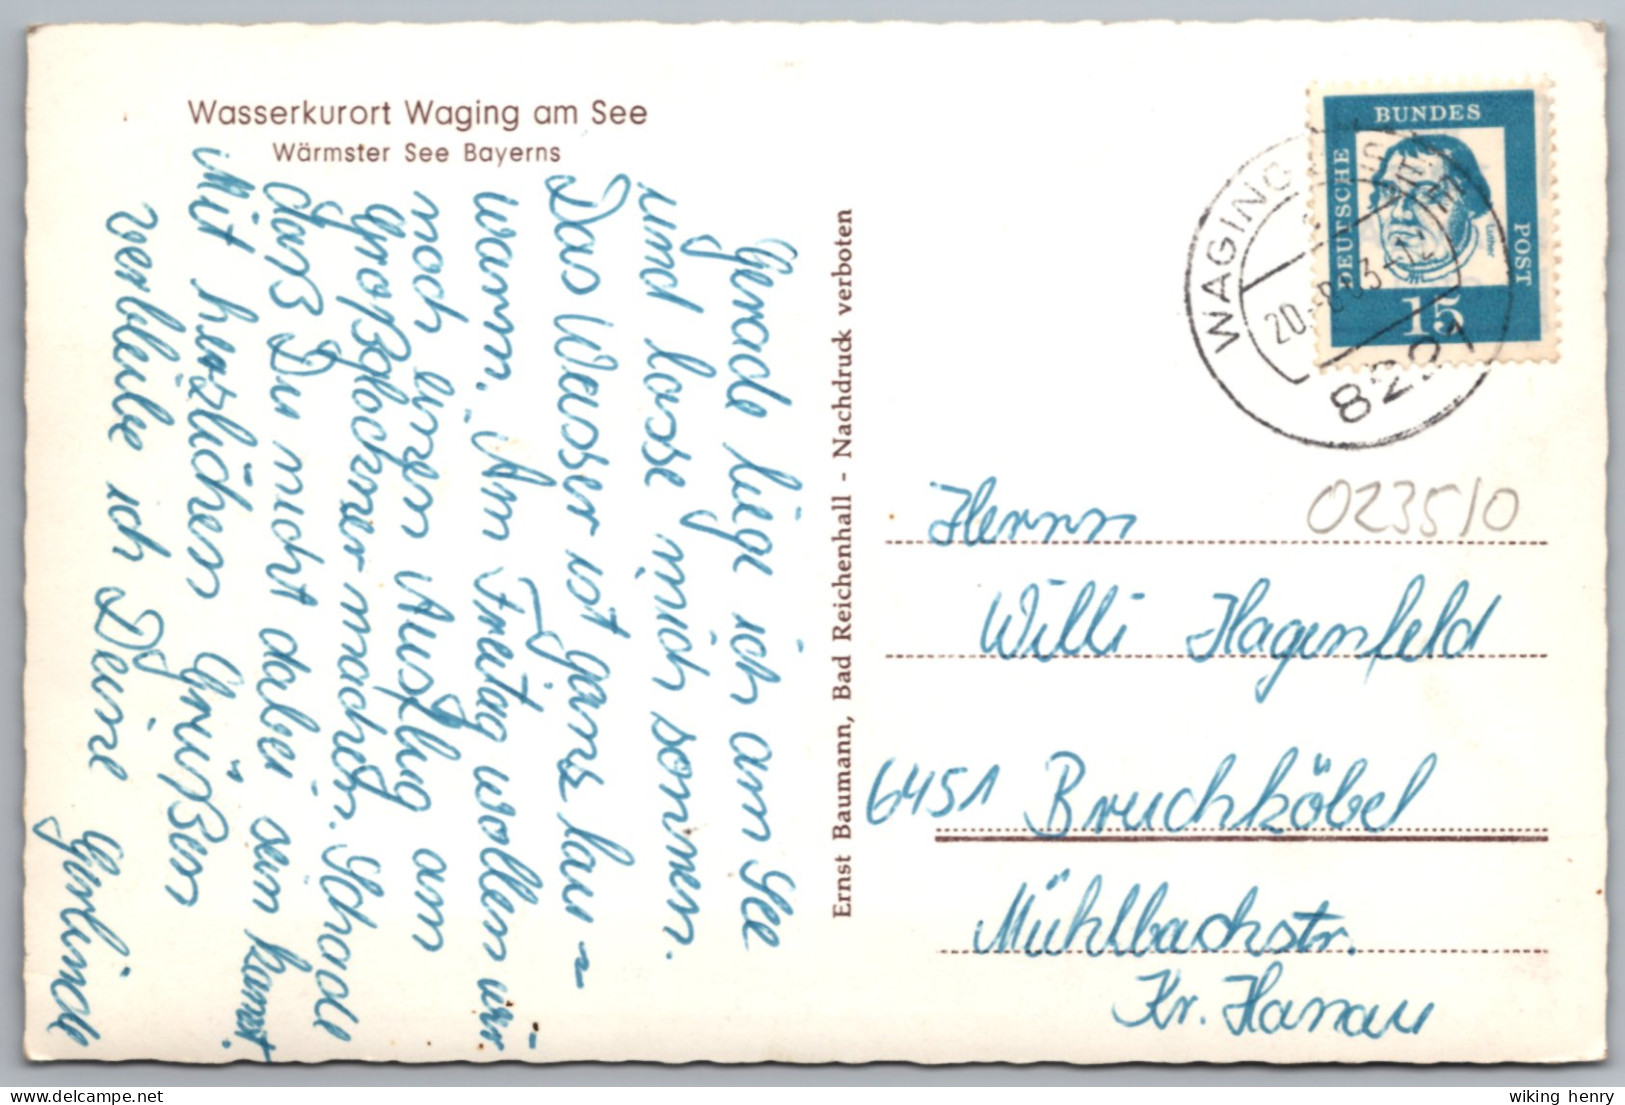 Wasserkurort Waging am See
Wärmster See Bayerns
Gerade liege ich am See
und lasse mich sonnen.
Das Wasser ist ganz lau-
warm. Am Freitag wollen wir
noch einen Ausflug am
Großglockner machen. Schade
daß Du nicht dabei sein kannst.
Mit herzlichen Grüßen
verbleibe ich Deine Gerlinde
Ernst Baumann, Bad Reichenhall - Nachdruck verboten
DEUTSCHE BUNDES POST
Luther
15
WAGING
20.-8.63-12
8221
0235/0
Herrn
Willi Hagenfeld
6451 Bruchköbel
Mühlbachstr.
Kr. Hanau
wiking henry